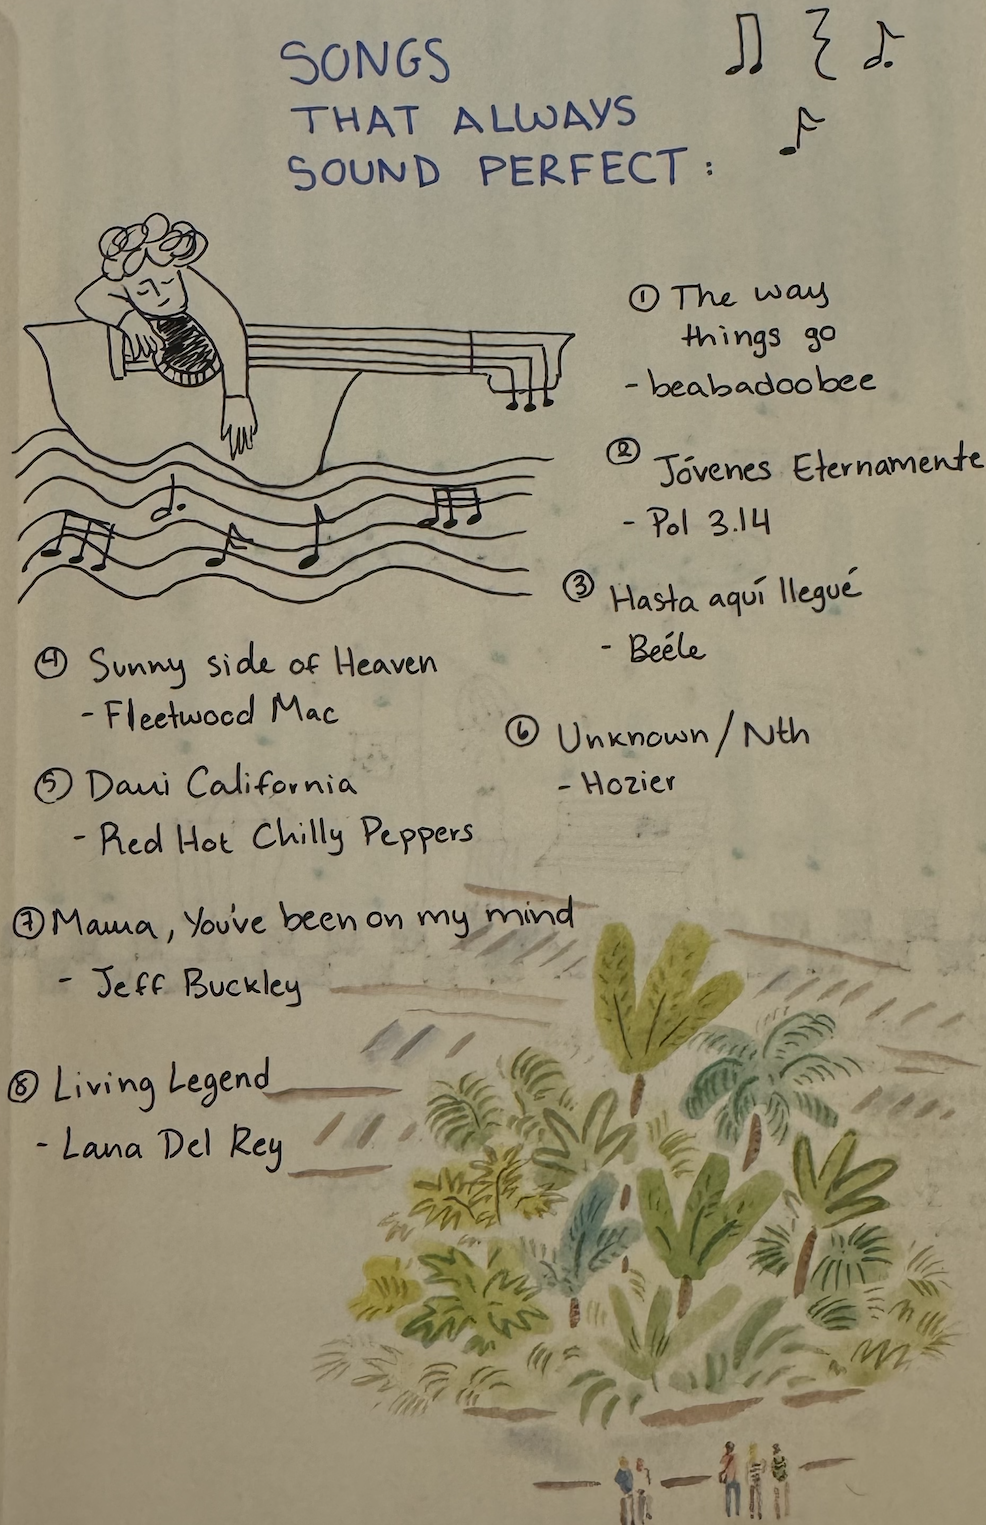 SONGS
THAT ALWAYS
SOUND PERFECT:
① The way
things go
- beabadoobee
② Jóvenes Eternamente
- Pol 3.14
③ Hasta aquí llegué
- Beéle
④ Sunny side of Heaven
- Fleetwood Mac
⑤ Dani California
- Red Hot Chilly Peppers
⑥ Unknown / Nth
- Hozier
⑦ Mama, You've been on my mind
- Jeff Buckley
⑧ Living Legend
- Lana Del Rey